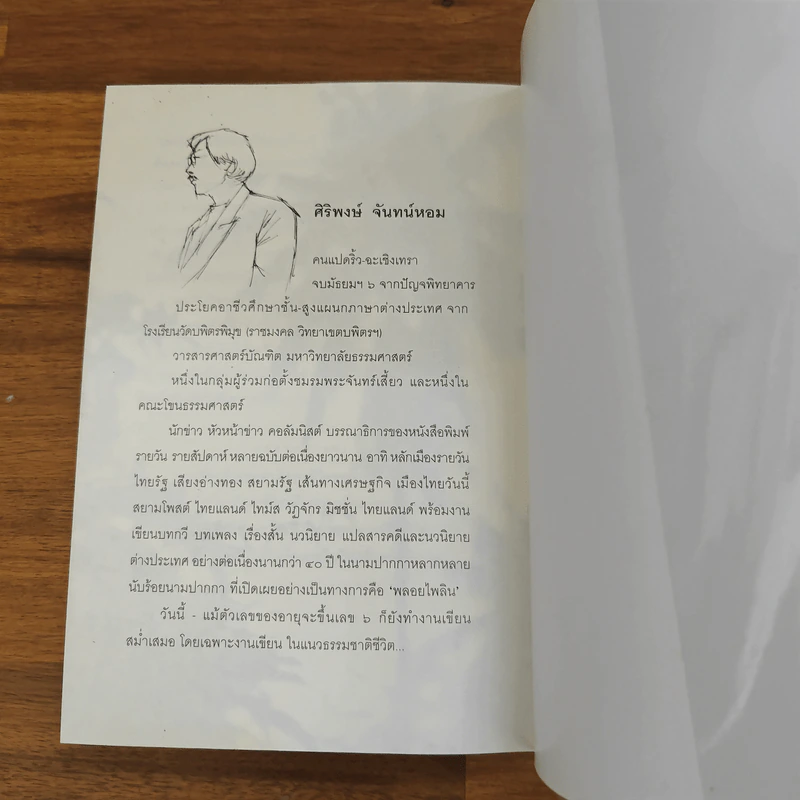 ศิริพงษ์ จันทน์หอม
คนแปดริ้ว-ฉะเชิงเทรา
จบมัธยมฯ ๖ จากปัญจพิทยาคาร
ประโยคอาชีวศึกษาชั้น-สูงแผนกภาษาต่างประเทศ จาก
โรงเรียนวัดบพิตรพิมุข (ราชมงคล วิทยาเขตบพิตรฯ)
วารสารศาสตร์บัณฑิต มหาวิทยาลัยธรรมศาสตร์
หนึ่งในกลุ่มผู้ร่วมก่อตั้งชมรมพระจันทร์เสี้ยว และหนึ่งใน
คณะโขนธรรมศาสตร์
นักข่าว หัวหน้าข่าว คอลัมนิสต์ บรรณาธิการของหนังสือพิมพ์
รายวัน รายสัปดาห์ หลายฉบับต่อเนื่องยาวนาน อาทิ หลักเมืองรายวัน
ไทยรัฐ เสียงอ่างทอง สยามรัฐ เส้นทางเศรษฐกิจ เมืองไทยวันนี้
สยามโพสต์ ไทยแลนด์ ไทม์ส วัฏจักร มิชชั่น ไทยแลนด์ พร้อมงาน
เขียนบทกวี บทเพลง เรื่องสั้น นวนิยาย แปลสารคดีและนวนิยาย
ต่างประเทศ อย่างต่อเนื่องนานกว่า ๔๐ ปี ในนามปากกาหลากหลาย
นับร้อยนามปากกา ที่เปิดเผยอย่างเป็นทางการคือ ‘พลอยไพลิน’
วันนี้ - แม้ตัวเลขของอายุจะขึ้นเลข ๖ ก็ยังทำงานเขียน
สม่ำเสมอ โดยเฉพาะงานเขียน ในแนวธรรมชาติชีวิต...